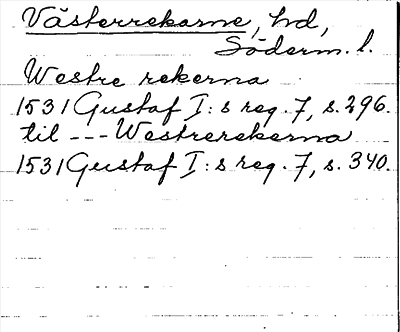 Västerrekarne, hd,
Söderm. l.
Westre rekerna
1531 Gustaf I:s reg. 7, s. 296.
til --- Westrerekerna
1531 Gustaf I:s reg. 7, s. 340.